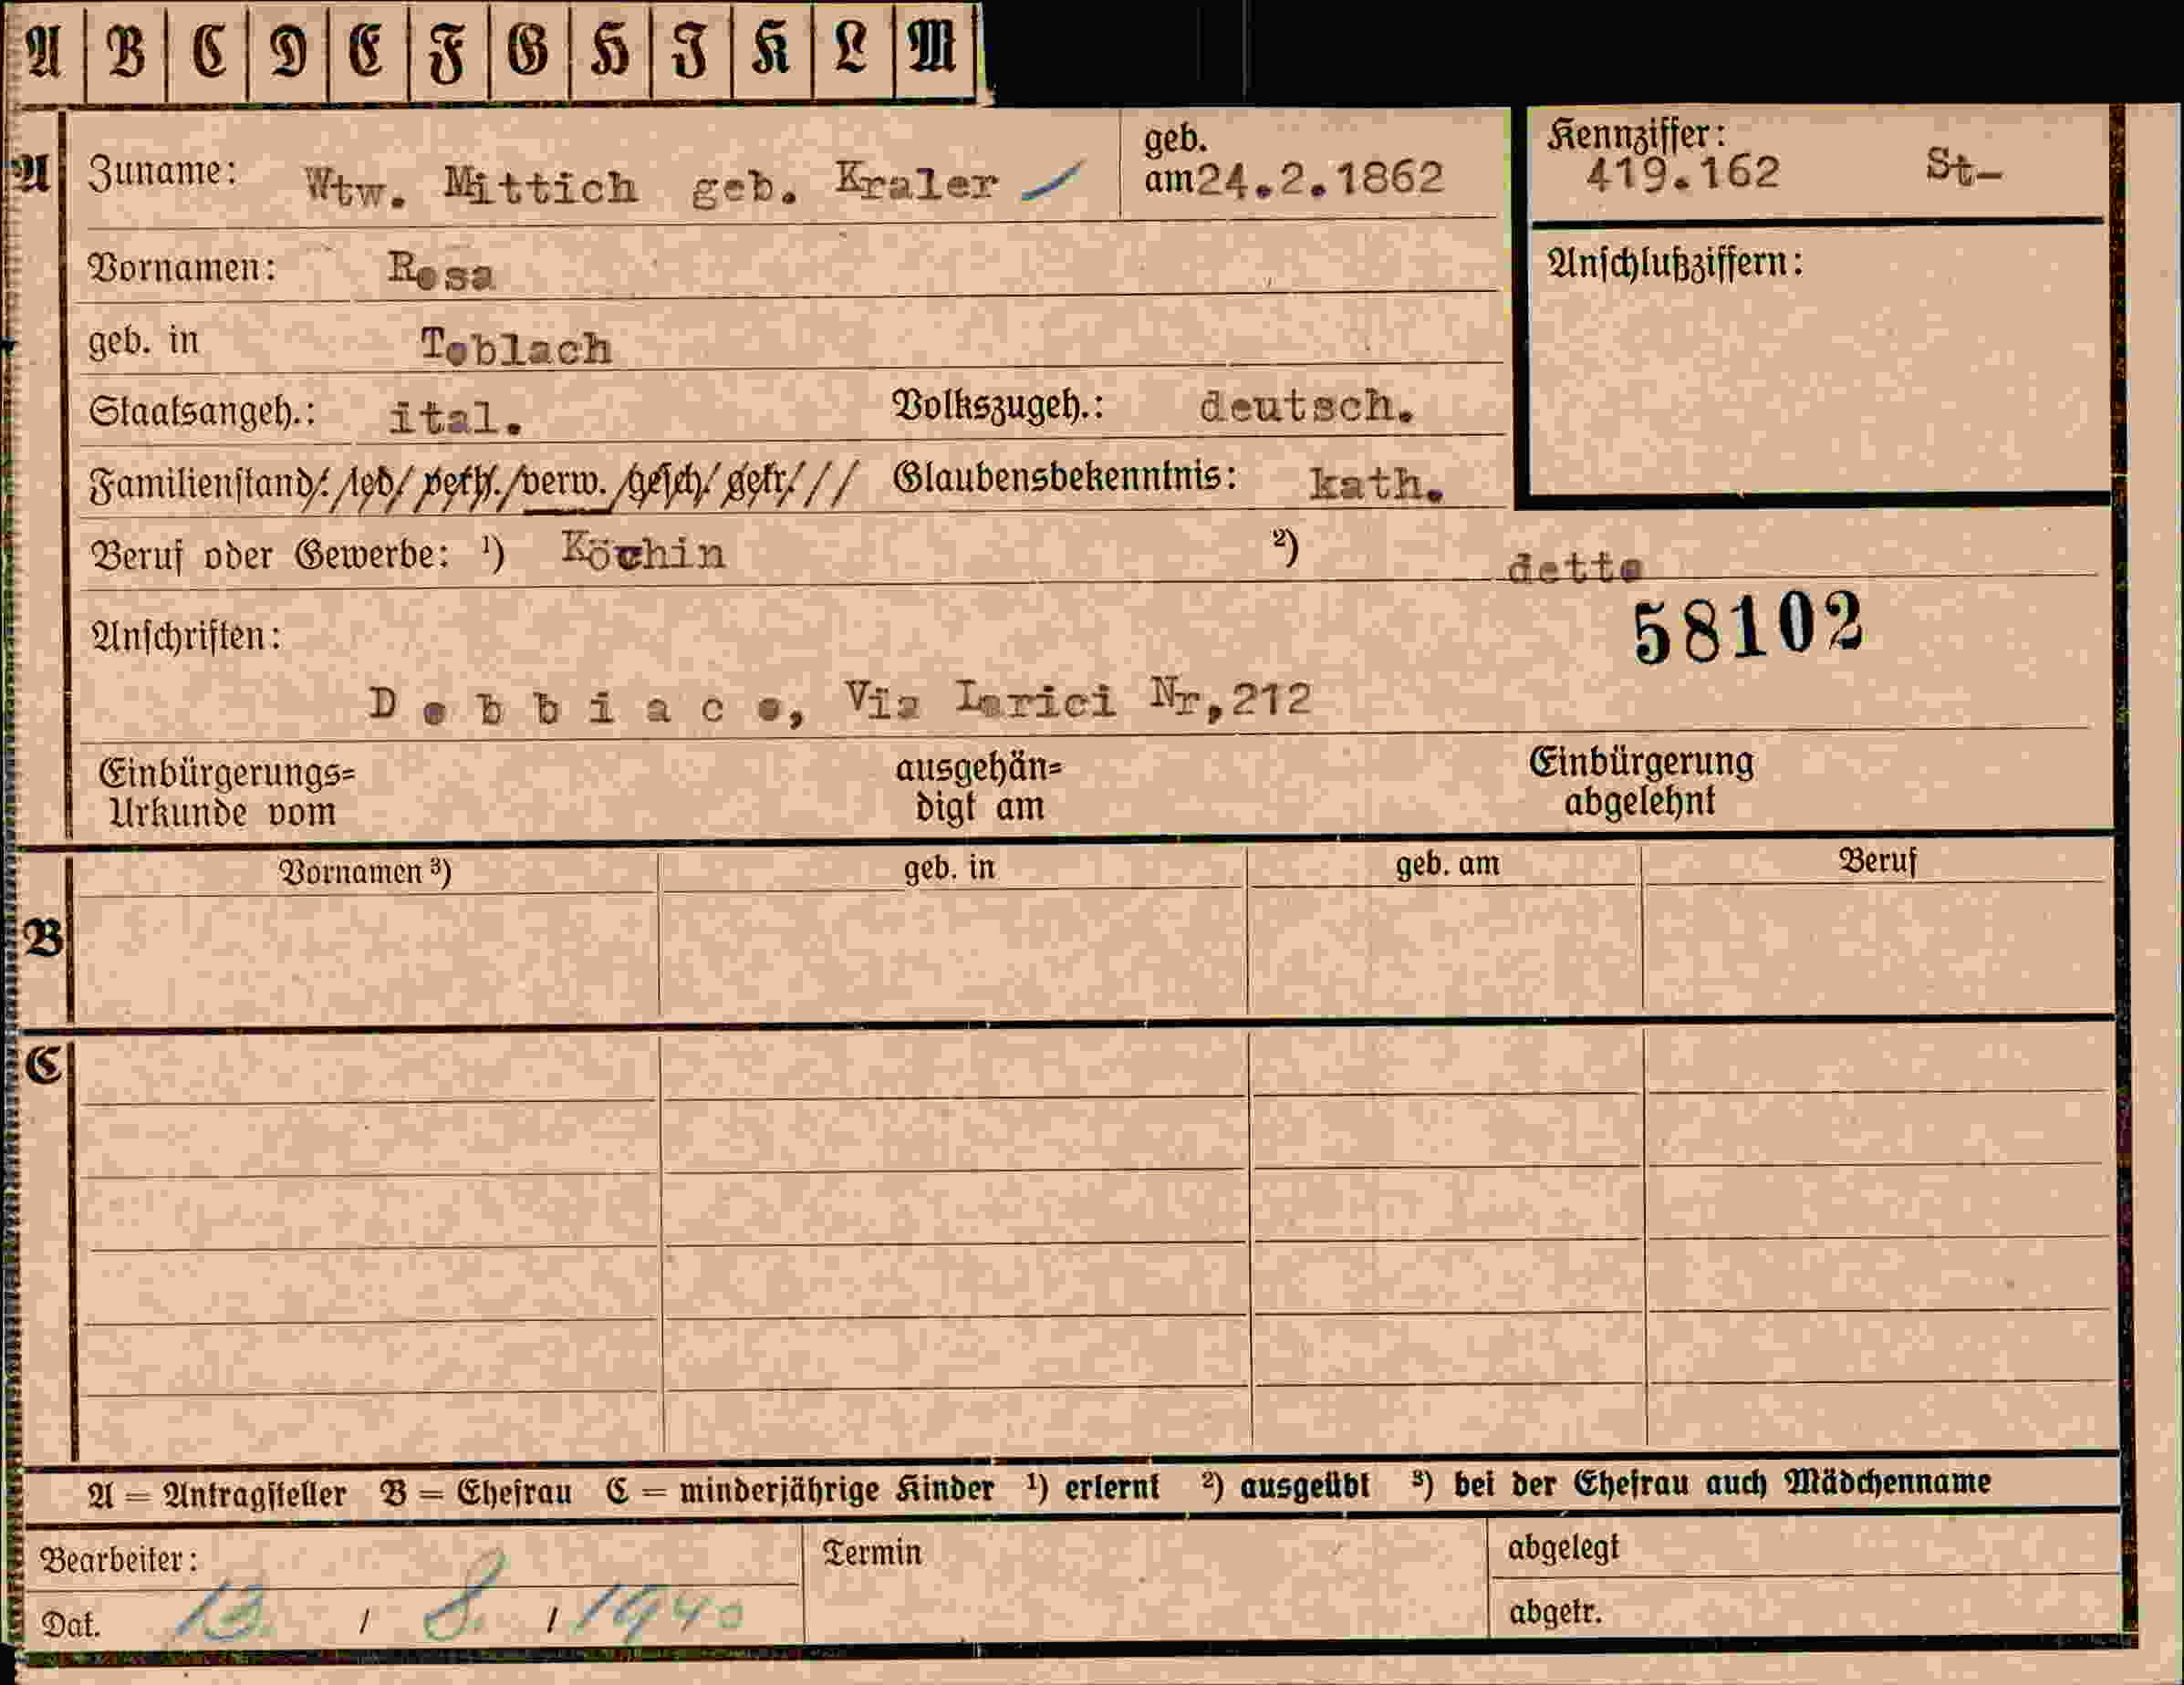 A B C D E F G H I K L M
A Zuname: Wtw. Mittich geb. Kraler geb. am 24.2.1862 Kennziffer: 419.162 St-
Vornamen: Rosa Anschlußziffern:
geb. in Toblach
Staatsangeh.: ital. Volkszugeh.: deutsch.
Familienstand: led. verh. verw. gesch. getr. Glaubensbekenntnis: kath.
Beruf oder Gewerbe: ¹) Köchin ²) detto
58102
Anschriften:
Dobbiaco, Via Nr,212
Einbürgerungs= ausgehän= Einbürgerung
Urkunde vom digt am abgelehnt
Vornamen ³) geb. in geb. am Beruf
B
C
A = Antragsteller B = Ehefrau C = minderjährige Kinder ¹) erlernt ²) ausgeübt ³) bei der Ehefrau auch Mädchenname
Bearbeiter: Termin abgelegt
Dat. 13. / 8. / 1940 abgetr.